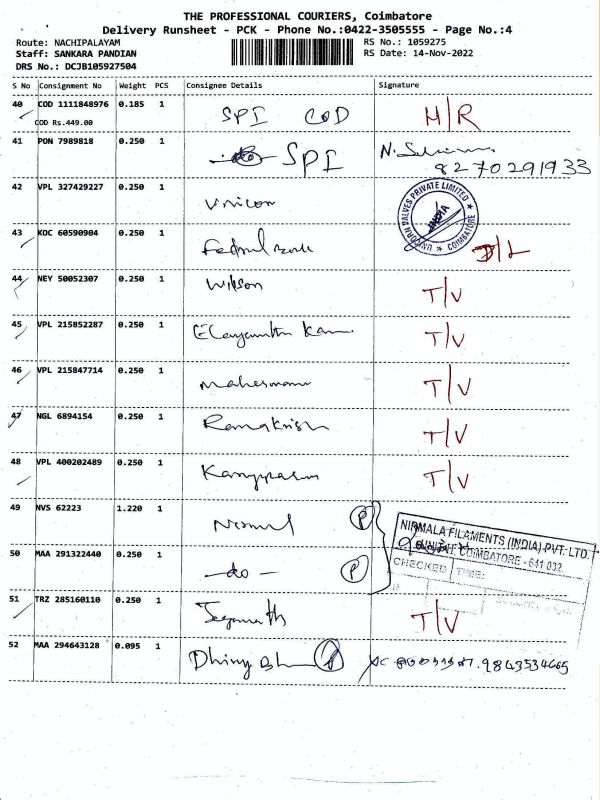 THE PROFESSIONAL COURIERS, Coimbatore
Delivery Runsheet - PCK - Phone No.:0422-3505555 - Page No.:4
Route: NACHIPALAYAM
RS No.: 1059275
Staff: SANKARA PANDIAN
RS Date: 14-Nov-2022
DRS No.: DCJB105927504
S No Consignment No Weight PCS Consignee Details Signature
40 COD 1111848976 0.185 1 SPI COD M/R
COD Rs.449.00
41 PON 7989818 0.250 1 SPI
8270291933
42 VPL 327429227 0.250 1 Unicon
VALVES PRIVATE LIMITED
INDIA
COIMBATORE
43 KOC 60590904 0.250 1 Fedral Bank D/L
44 NEY 50052307 0.250 1 Wilson T/V
45 VPL 215852287 0.250 1 T/V
46 VPL 215847714 0.250 1 T/V
47 NGL 6894154 0.250 1 Ramakrish T/V
48 VPL 400202489 0.250 1 T/V
49 NVS 62223 1.220 1 Nirmal P
NIRMALA FILAMENTS (INDIA) PVT. LTD
COIMBATORE - 641 032.
50 MAA 291322440 0.250 1 -do- P
CHECKED TIME:
51 TRZ 285160110 0.250 1 T/V
52 MAA 294643128 0.095 1 P